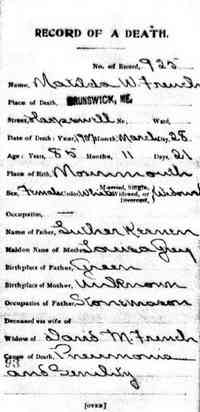 RECORD OF A DEATH.
No. of Record, 925
Name, Matilda W. French
Place of Death, BRUNSWICK, ME.
Street, No., Ward,
Date of Death: Year, Month, March Day, 28
Age: Years, 85 Months, 11 Days, 21
Place of Birth, Monmouth
Sex, Female Color, White Married, Single, Widowed, or Divorced, Widowed
Occupation,
Name of Father, Luther
Maiden Name of Mother, Louisa
Birthplace of Father, Green
Birthplace of Mother, Unknown
Occupation of Father, Stonemason
Deceased was wife of
Widow of David M. French
Cause of Death, Pneumonia
93 and Senility
[OVER]